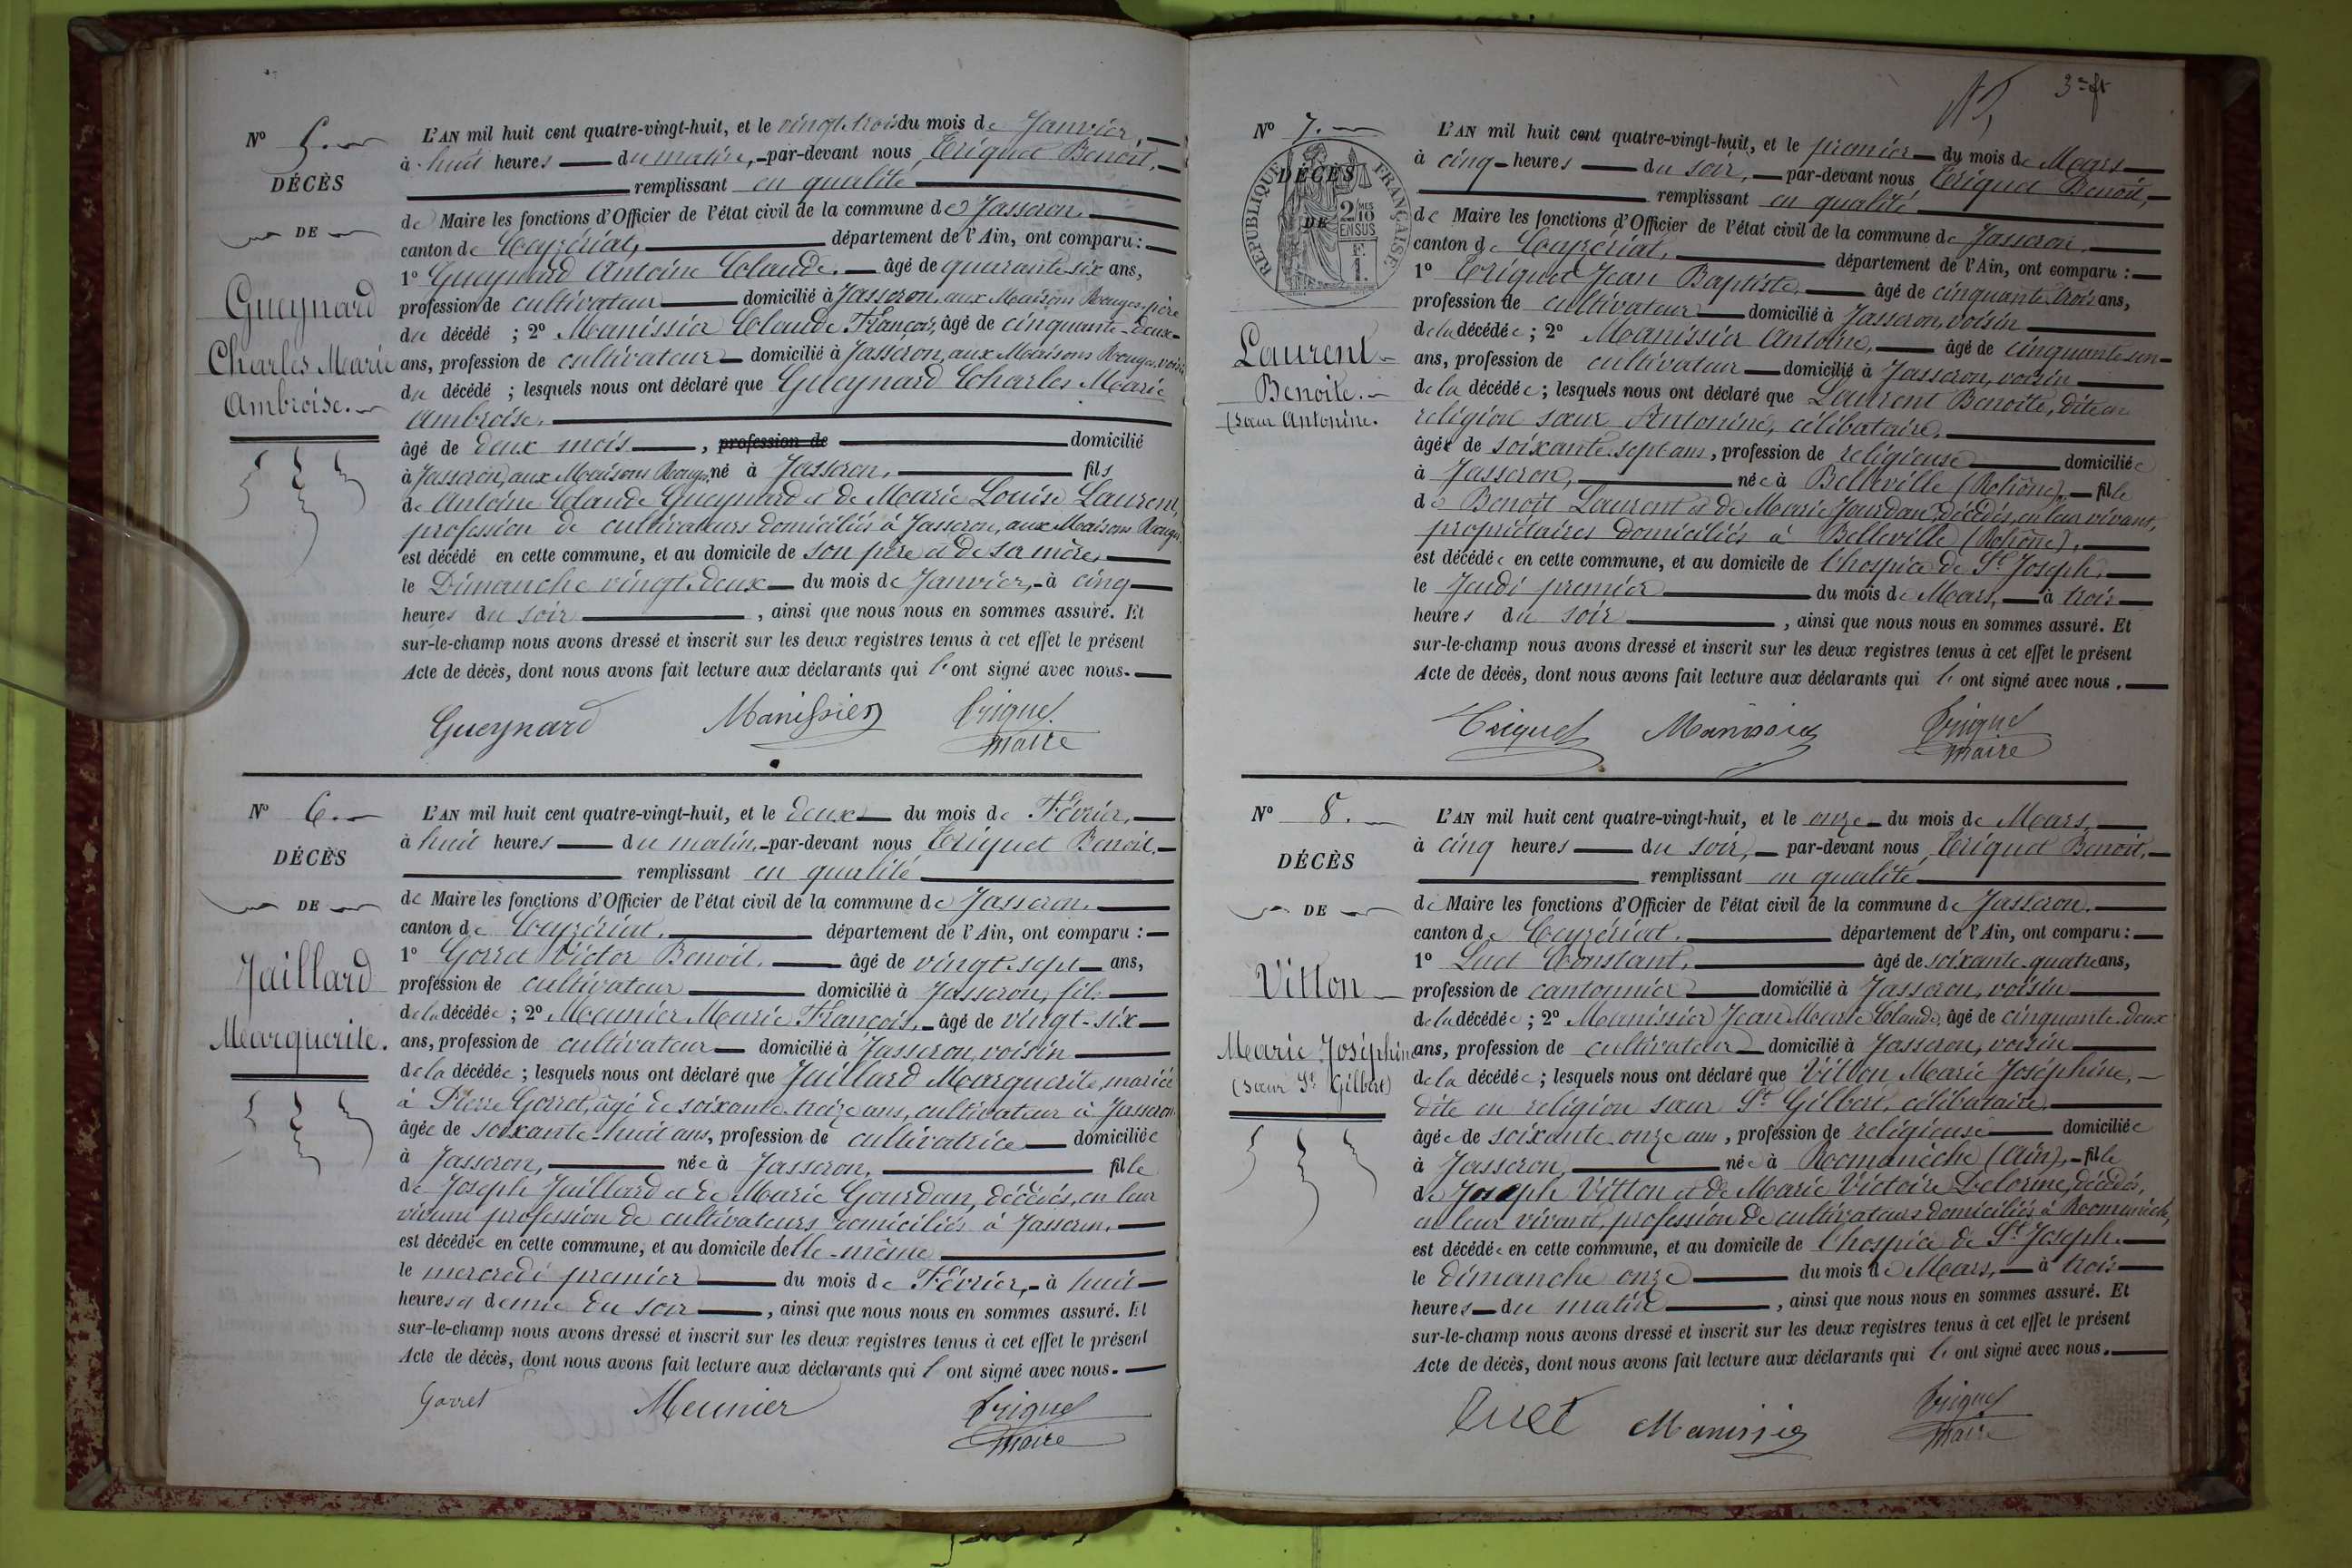 N° 5.
DÉCÈS
DE
Gueynard
Charles Marie
Ambroise.
L'AN mil huit cent quatre-vingt-huit, et le vingt-trois du mois de Janvier,
à huit heures du matin, par-devant nous Triquet Benoit,
remplissant en qualité
de Maire les fonctions d'Officier de l'état civil de la commune de Jasseron,
canton de Ceyzériat, département de l'Ain, ont comparu :
1° Gueynard Antoine Claude. âgé de quarante-six ans,
profession de cultivateur domicilié à Jasseron, aux Maisons Rouges, père
du décédé ; 2° Manissier Claude François, âgé de cinquante-deux
ans, profession de cultivateur domicilié à Jasseron, aux Maisons Rouges, voisin
du décédé ; lesquels nous ont déclaré que Gueynard Charles Marie
Ambroise.
âgé de deux mois , profession de domicilié
à Jasseron, aux Maisons Rouges, né à Jasseron, fils
de Antoine Claude Gueynard et de Marie Louise Laurent,
profession de cultivateurs domiciliés à Jasseron, aux Maisons Rouges,
est décédé en cette commune, et au domicile de son père et de sa mère,
le Dimanche vingt-deux du mois de Janvier, à cinq
heures du soir , ainsi que nous nous en sommes assuré. Et
sur-le-champ nous avons dressé et inscrit sur les deux registres tenus à cet effet le présent
Acte de décès, dont nous avons fait lecture aux déclarants qui l'ont signé avec nous.
Gueynard Manissier Triquet
maire
N° 6.
DÉCÈS
DE
Jaillard
Marguerite.
L'AN mil huit cent quatre-vingt-huit, et le deux du mois de Février,
à huit heures du matin, par-devant nous Triquet Benoit,
remplissant en qualité
de Maire les fonctions d'Officier de l'état civil de la commune de Jasseron.
canton de Ceyzériat, département de l'Ain, ont comparu :
1° Gorret Victor Benoit. âgé de vingt-sept ans,
profession de cultivateur domicilié à Jasseron, fils
de la décédée ; 2° Meunier Marie François, âgé de vingt-six
ans, profession de cultivateur domicilié à Jasseron, voisin
de la décédée ; lesquels nous ont déclaré que Jaillard Marguerite, mariée
à Pierre Gorret, âgé de soixante-treize ans, cultivateur à Jasseron,
âgée de soixante-huit ans, profession de cultivatrice domiciliée
à Jasseron, née à Jasseron, fille
de Joseph Jaillard et de Marie Gourdan, décédés, en leur
vivant profession de cultivateurs domiciliés à Jasseron,
est décédée en cette commune, et au domicile d'elle-même
le mercredi premier du mois de Février, à huit
heures et demie du soir , ainsi que nous nous en sommes assuré. Et
sur-le-champ nous avons dressé et inscrit sur les deux registres tenus à cet effet le présent
Acte de décès, dont nous avons fait lecture aux déclarants qui l'ont signé avec nous.
Gorret Meunier Triquet
maire
3e ft
N° 7.
DÉCÈS
DE
RÉPUBLIQUE FRANÇAISE
2 MES
10
EN SUS
F.
1.
Laurent
Benoite.
(Sœur Antonine.
L'AN mil huit cent quatre-vingt-huit, et le premier du mois de Mars
à cinq heures du soir, par-devant nous Triquet Benoit,
remplissant en qualité
de Maire les fonctions d'Officier de l'état civil de la commune de Jasseron,
canton de Ceyzériat, département de l'Ain, ont comparu :
1° Triquet Jean Baptiste, âgé de cinquante-trois ans,
profession de cultivateur domicilié à Jasseron, voisin
de la décédée ; 2° Manissier Antoine, âgé de cinquante-un
ans, profession de cultivateur domicilié à Jasseron, voisin
de la décédée ; lesquels nous ont déclaré que Laurent Benoite, dite en
religion sœur Antonine, célibataire,
âgée de soixante-sept ans, profession de religieuse domiciliée
à Jasseron, née à Belleville (Rohône), fille
de Benoit Laurent et de Marie Jourdan, décédés, en leur vivant,
propriétaires domiciliés à Belleville (Rohône),
est décédée en cette commune, et au domicile de l'hospice de St Joseph,
le Jeudi premier du mois de Mars, à trois
heures du soir , ainsi que nous nous en sommes assuré. Et
sur-le-champ nous avons dressé et inscrit sur les deux registres tenus à cet effet le présent
Acte de décès, dont nous avons fait lecture aux déclarants qui l'ont signé avec nous.
Triquet Manissier Triquet
maire
N° 8.
DÉCÈS
DE
Vitton
Marie Joséphine
(Sœur St Gilbert)
L'AN mil huit cent quatre-vingt-huit, et le onze du mois de Mars,
à cinq heures du soir, par-devant nous Triquet Benoit,
remplissant en qualité
de Maire les fonctions d'Officier de l'état civil de la commune de Jasseron.
canton de Ceyzériat. département de l'Ain, ont comparu :
1° Luet Constant, âgé de soixante-quatre ans,
profession de cantonnier domicilié à Jasseron, voisin
de la décédée ; 2° Manissier Jean Marie Claude, âgé de cinquante-deux
ans, profession de cultivateur domicilié à Jasseron, voisin
de la décédée ; lesquels nous ont déclaré que Vitton Marie Joséphine,
dite en religion sœur St Gilbert, célibataire,
âgée de soixante-onze ans, profession de religieuse domiciliée
à Jasseron, née à Romanèche (Ain), fille
de Joseph Vitton et de Marie Victoire Delorme, décédés,
en leur vivant, profession de cultivateurs domiciliés à Romanèche,
est décédée en cette commune, et au domicile de l'hospice de St Joseph.
le dimanche onze du mois de Mars, à trois
heures du matin , ainsi que nous nous en sommes assuré. Et
sur-le-champ nous avons dressé et inscrit sur les deux registres tenus à cet effet le présent
Acte de décès, dont nous avons fait lecture aux déclarants qui l'ont signé avec nous.
Luet Manissier Triquet
maire